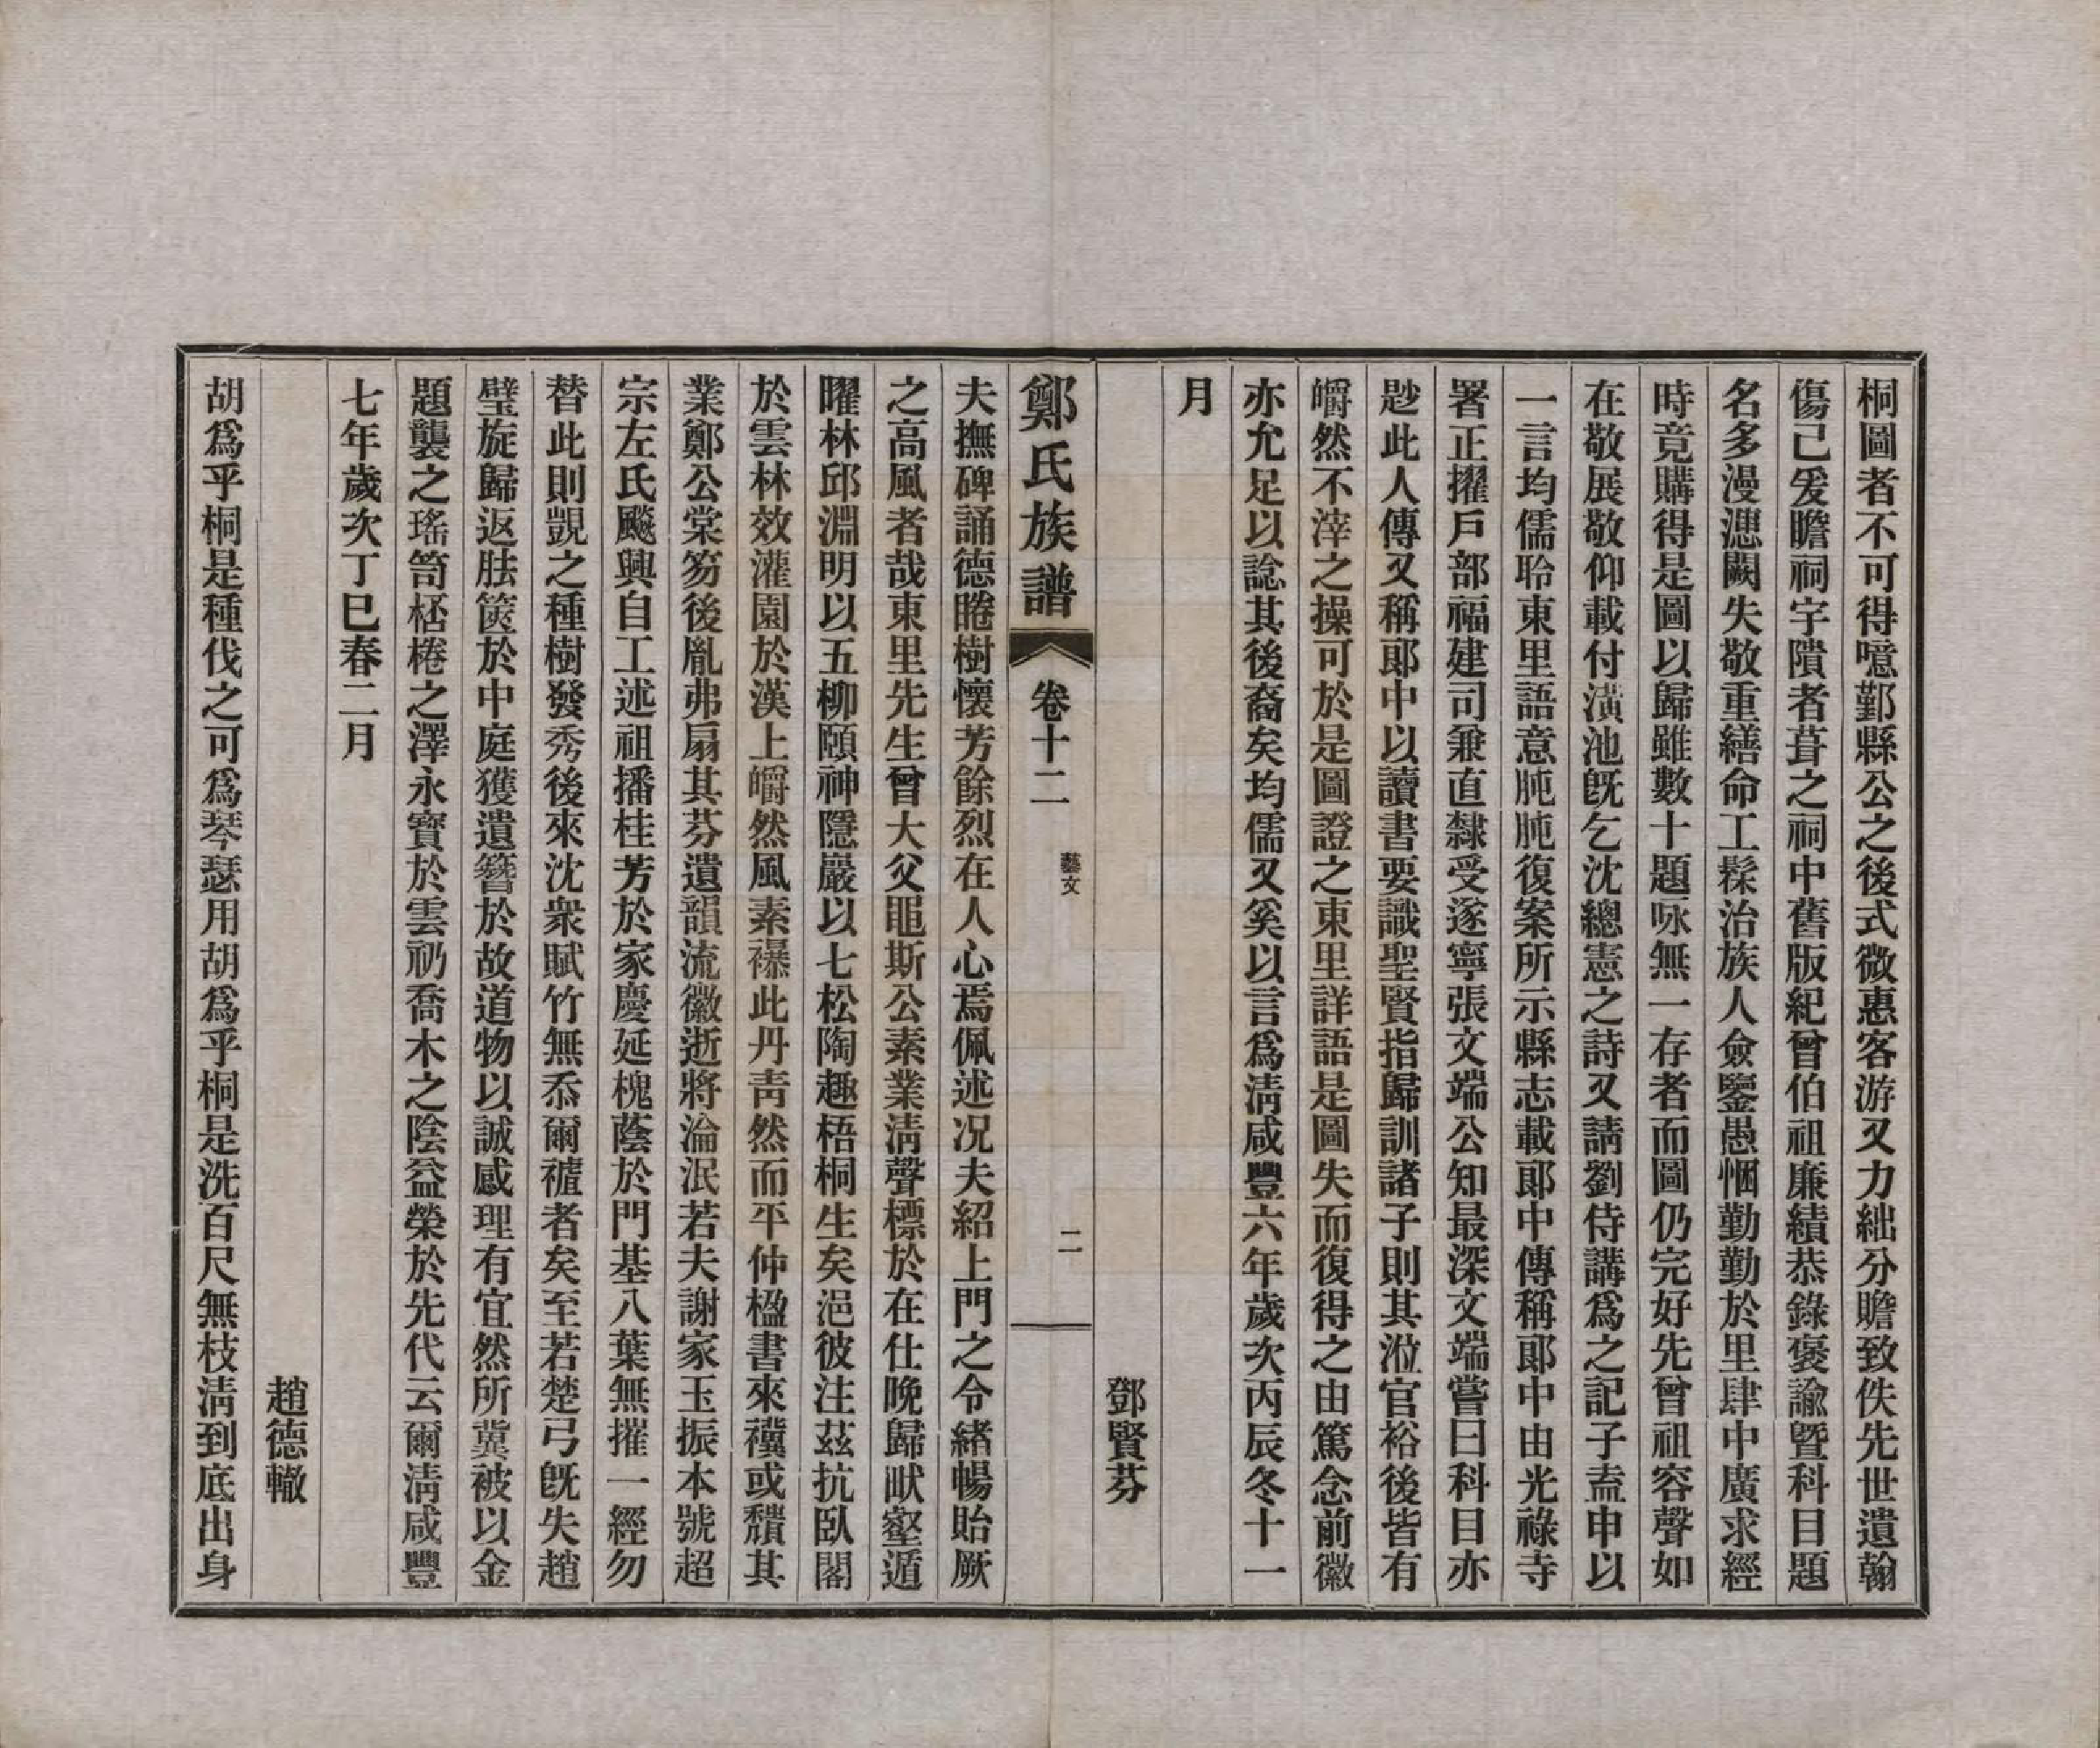 桐圖者不可得噫鄞縣公之後式微惠客游又力絀分贍致佚先世遺翰
傷已爰瞻祠宇隤者葺之祠中舊版紀曾伯祖廉績恭錄褒諭暨科目題
名多漫漶闕失敬重繕命工髹治族人僉鑒愚悃勤勤於里肆中廣求經
時竟購得是圖以歸雖數十題咏無一存者而圖仍完好先曾祖容聲如
在敬展敬仰載付潢池旣乞沈總憲之詩又請劉侍講爲之記子盍申以
一言均儒聆東里語意肫肫復案所示縣志載郞中傳稱郞中由光祿寺
署正擢戶部福建司兼直隸受遂寧張文端公知最深文端嘗曰科目亦
尠此人傳又稱郞中以讀書要識聖賢指歸訓諸子則其涖官裕後皆有
皭然不滓之操可於是圖證之東里詳語是圖失而復得之由篤念前徽
亦允足以諗其後裔矣均儒又奚以言爲淸咸豐六年歲次丙辰冬十一
月
鄧賢芬
鄭氏族譜 卷十二 藝文 二
夫撫碑誦德睠樹懷芳餘烈在人心焉佩述況夫紹上門之令緒暢貽厥
之高風者哉東里先生曾大父黽斯公素業淸聲標於在仕晚歸畎壑遁
曜林邱淵明以五柳頤神隱嚴以七松陶趣梧桐生矣浥彼注茲抗臥閣
於雲林效灌園於漢上皭然風素襮此丹靑然而平仲楹書來禨或黷其
業鄭公棠笏後胤弗扇其芬遺韻流徽逝將淪泯若夫謝家玉振本號超
宗左氏飈興自工述祖播桂芳於家慶延槐蔭於門基八葉無摧一經勿
替此則覬之種樹發秀後來沈衆賦竹無忝爾禃者矣至若楚弓旣失趙
璧旋歸返胠篋於中庭獲遺簪於故道物以誠感理有宜然所冀被以金
題襲之瑤笥桮棬之澤永寶於雲礽喬木之陰益榮於先代云爾淸咸豐
七年歲次丁巳春二月
趙德轍
胡爲乎桐是種伐之可爲琴瑟用胡爲乎桐是洗百尺無枝淸到底出身